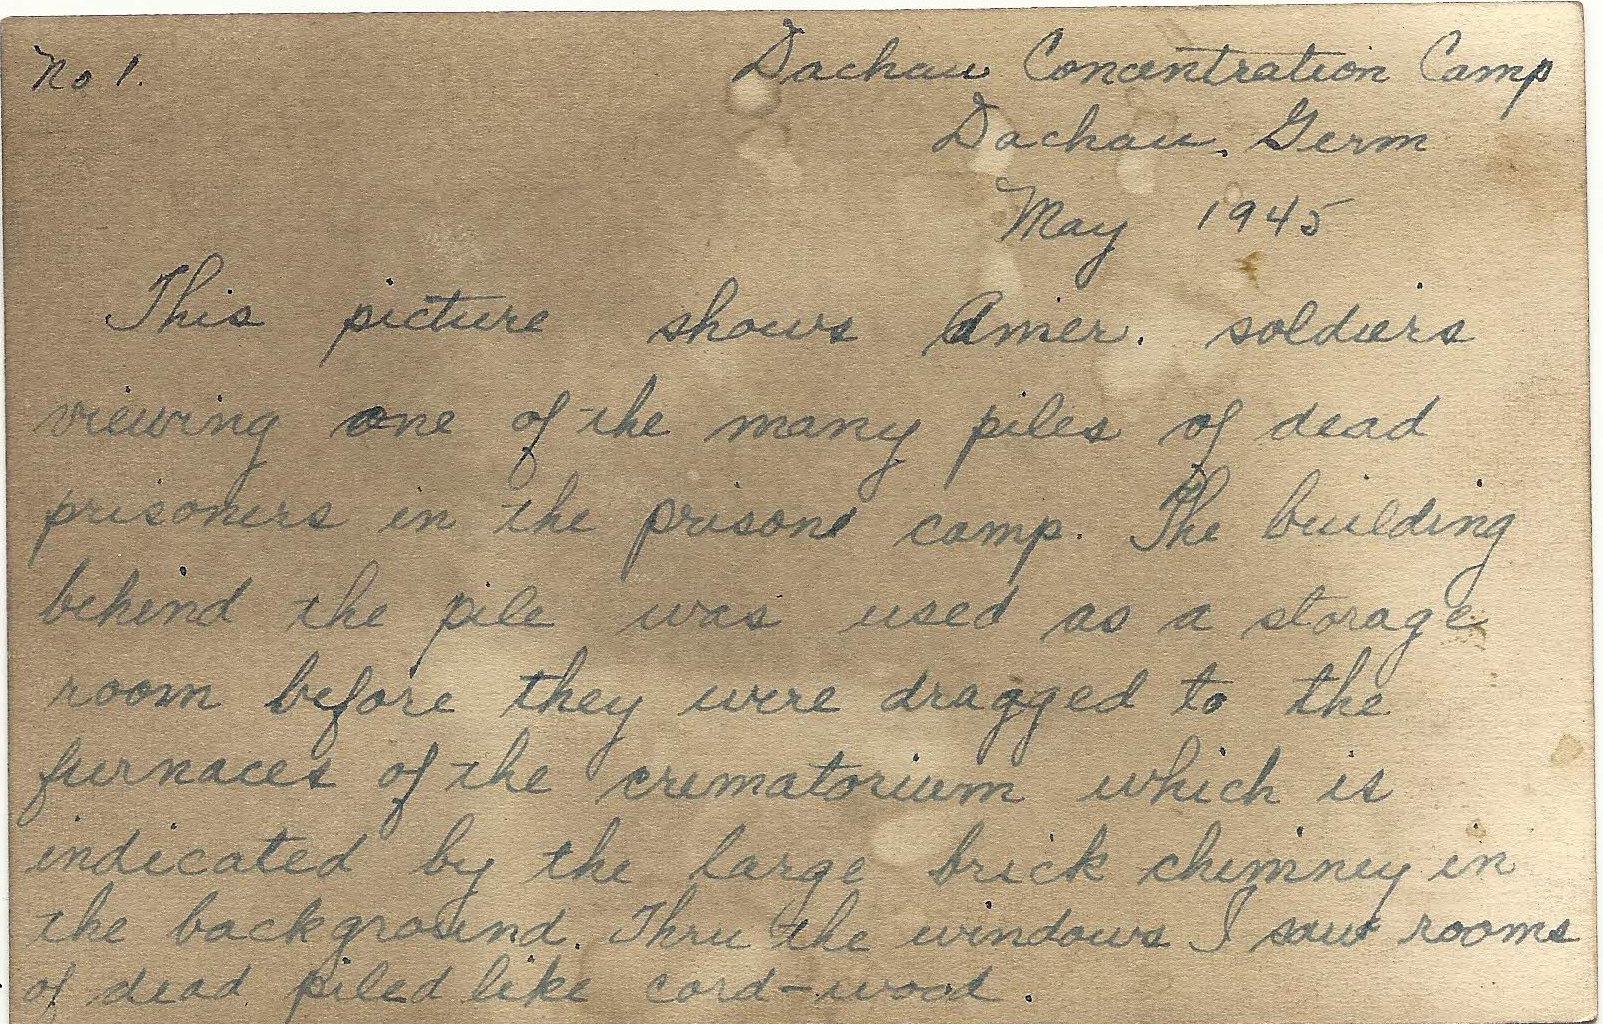 No 1.
Dachau Concentration Camp
Dachau, Germ
May 1945
This picture shows Amer. soldiers
viewing one of the many piles of dead
prisoners in the prison camp. The building
behind the pile was used as a storage
room before they were dragged to the
furnaces of the crematorium which is
indicated by the large brick chimney in
the background. Thru the windows I saw rooms
of dead piled like cord-wood.